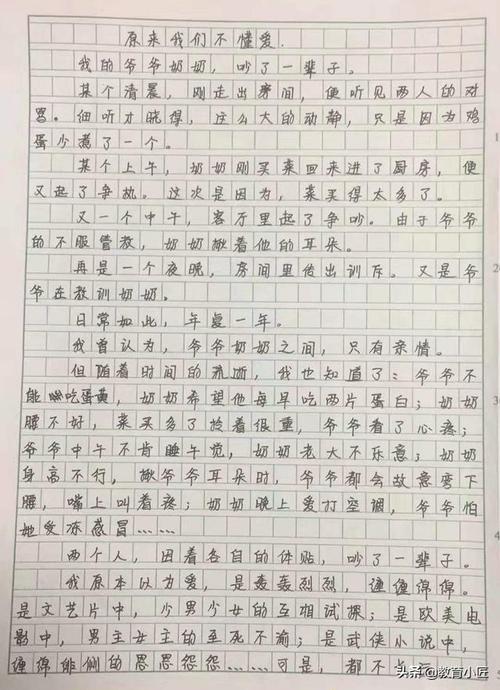 原来我们不懂爱.
我的爷爷奶奶，吵了一辈子。
某个清晨，刚走出房间，便听见两人的对
骂。细听才晓得，这么大的动静，只是因为鸡
蛋少煮了一个。
某个上午，奶奶刚买菜回来进了厨房，便
又起了争执。这次是因为，菜买得太多了。
又一个中午，客厅里起了争吵。由于爷爷
的不服管教，奶奶揪着他的耳朵。
再是一个夜晚，房间里传出训斥。又是爷
爷在教训奶奶。
日常如此，年复一年。
我曾认为，爷爷奶奶之间，只有亲情。
但随着时间的流逝，我也知道了：爷爷不
能吃蛋黄，奶奶希望他每早吃两片蛋白；奶奶
腰不好，菜买多了拎着很重，爷爷看了心疼；
爷爷中午不肯睡午觉，奶奶老大不乐意；奶奶
身高不行，揪爷爷耳朵时，爷爷都会故意弯下
腰，嘴上叫着疼；奶奶晚上爱打空调，爷爷怕
她受冻感冒……
两个人，因着各自的体贴，吵了一辈子。
我原本以为爱，是轰轰烈烈，缠缠绵绵。
是文艺片中，少男少女的互相试探；是欧美电
影中，男主女主的至死不渝；是武侠小说中，
缠绵悱恻的恩恩怨怨……可是，都不
头条@教育小匠